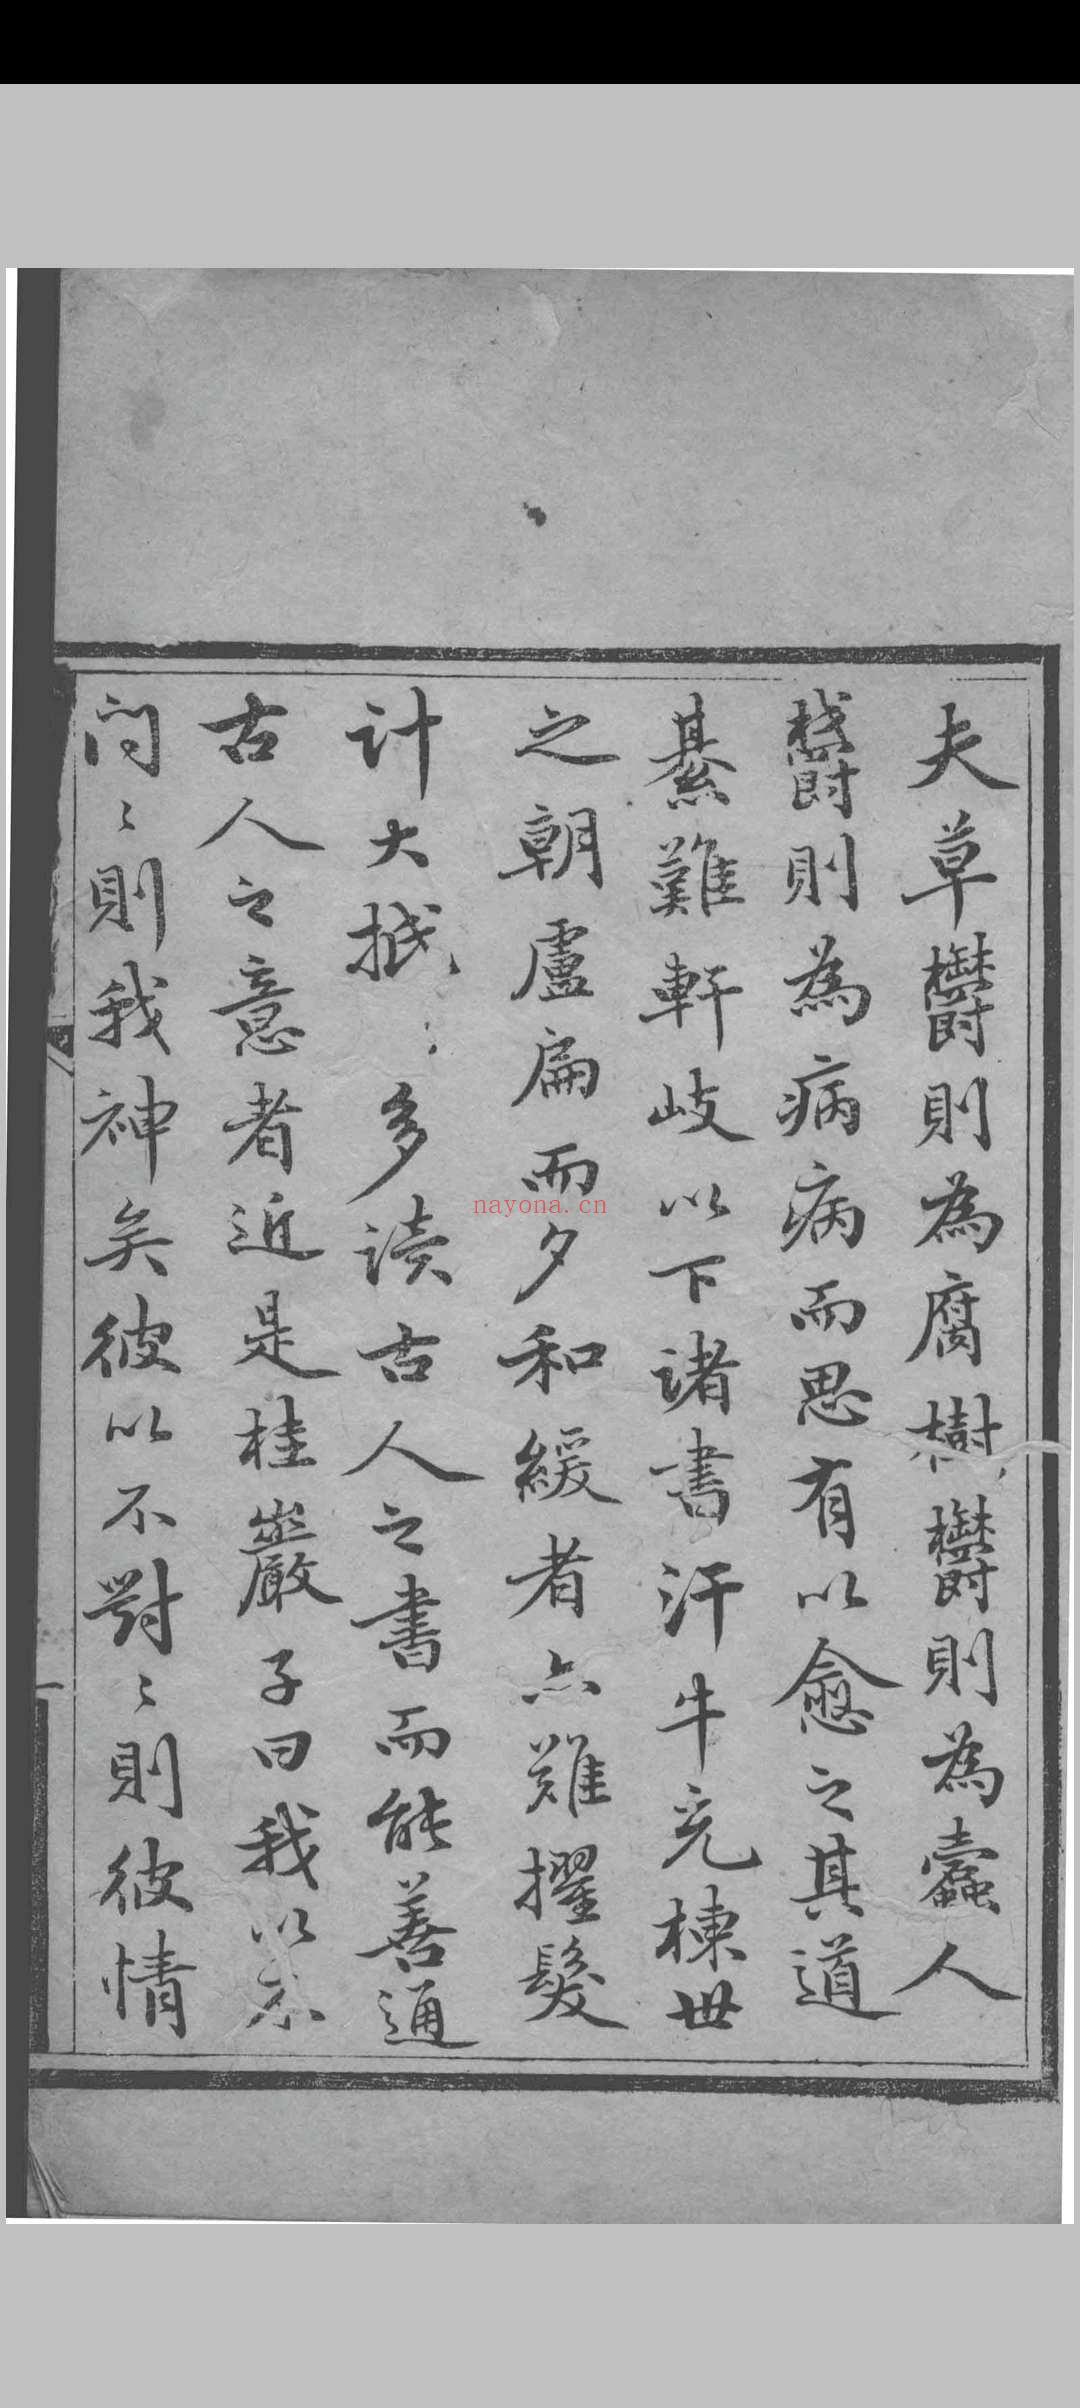 夫草欝則為腐樹欝則為蠧人
欝則為病病而思有以愈之其道
綦難軒岐以下諸書汗牛充棟世
之朝盧扁而夕和緩者亦難擢髮
計大抵多读古人之書而能善通
古人之意者近是桂巖子曰我以不
问〻則我神矣彼以不對〻則彼情
nayona.cn